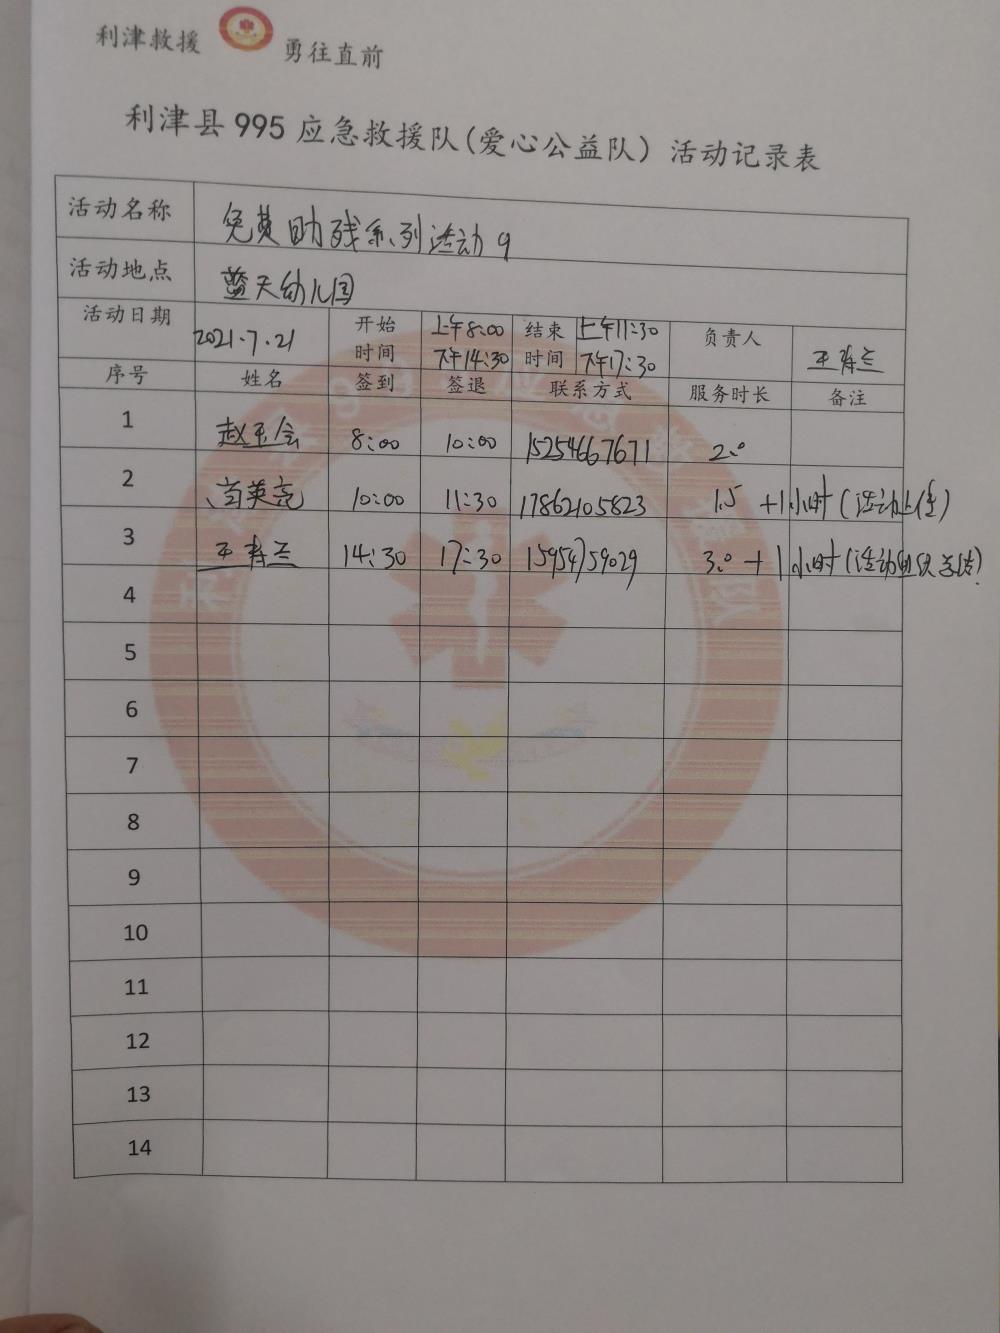 利津救援 勇往直前
利津县 995 应急救援队(爱心公益队) 活动记录表
活动名称 免费助残系列活动9
活动地点 蓝天幼儿园
活动日期 2021.7.21 开始时间 上午8:00 下午14:30 结束时间 上午11:30 下午17:30 负责人 王寿兰
序号 姓名 签到 签退 联系方式 服务时长 备注
1 赵玉会 8:00 10:00 15254667671 2.0
2 英亮 10:00 11:30 17862105823 1.5 +1小时(活动上传)
3 王寿兰 14:30 17:30 15954759029 3.0 +1小时(活动组织总结)
4
5
6
7
8
9
10
11
12
13
14